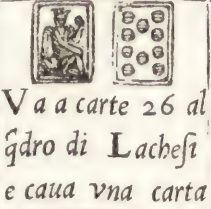 Va a carte 26 al
q̃dro di Lacheſi
e caua vna carta